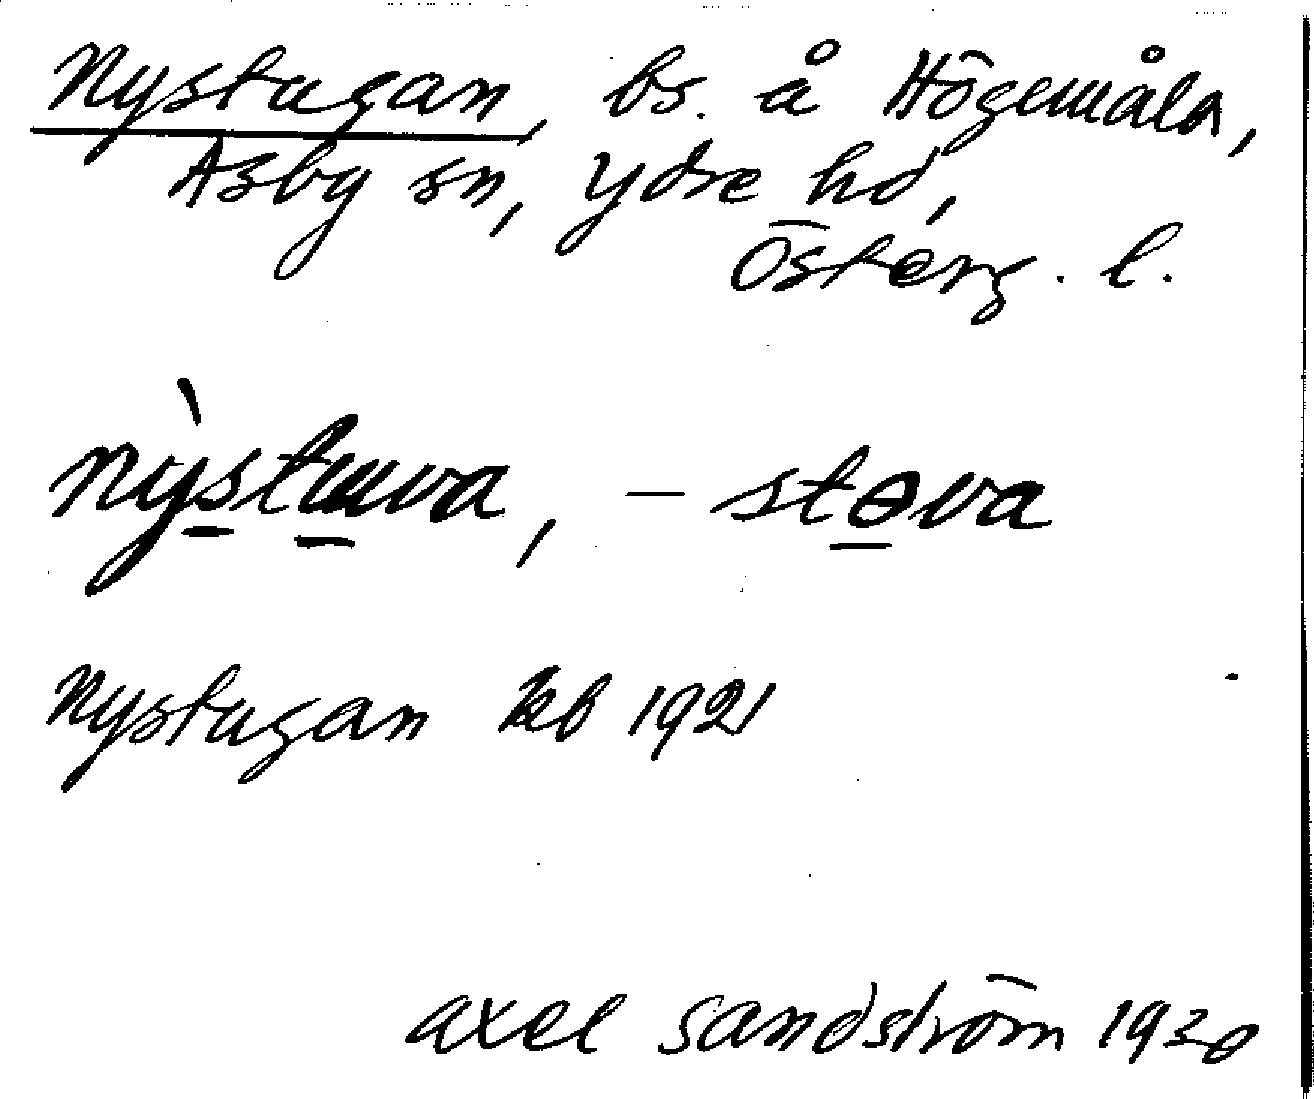 Nystugan, bs. å Högemåla,
Asby sn, Ydre hd,
Österg. l.
nỳstuva, – stɵva
Nystugan kb 1921
Axel Sandström 1930